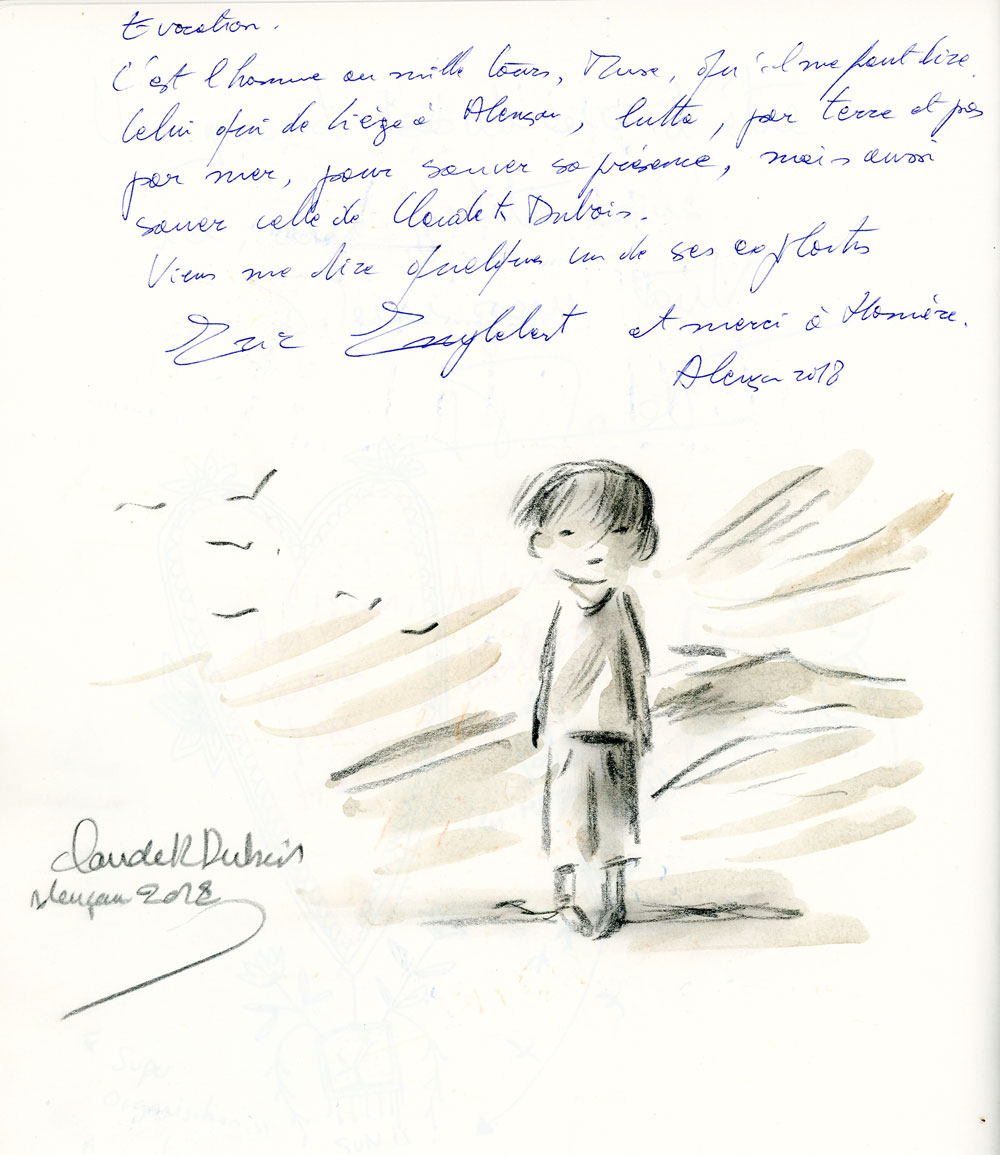 Evocation.
C'est l'homme au mille tours, Muse, qu'il me faut dire.
Celui qui de Liège à Alençon, lutta, par terre et pas
par mer, pour sauver sa présence, mais aussi
sauver celle de Claude K Dubois.
Viens me dire quelques un de ses exploits
Eric Englebert et merci à Homère.
Alençon 2018
Claude K Dubois
Alençan 2018
Super
SUNIS